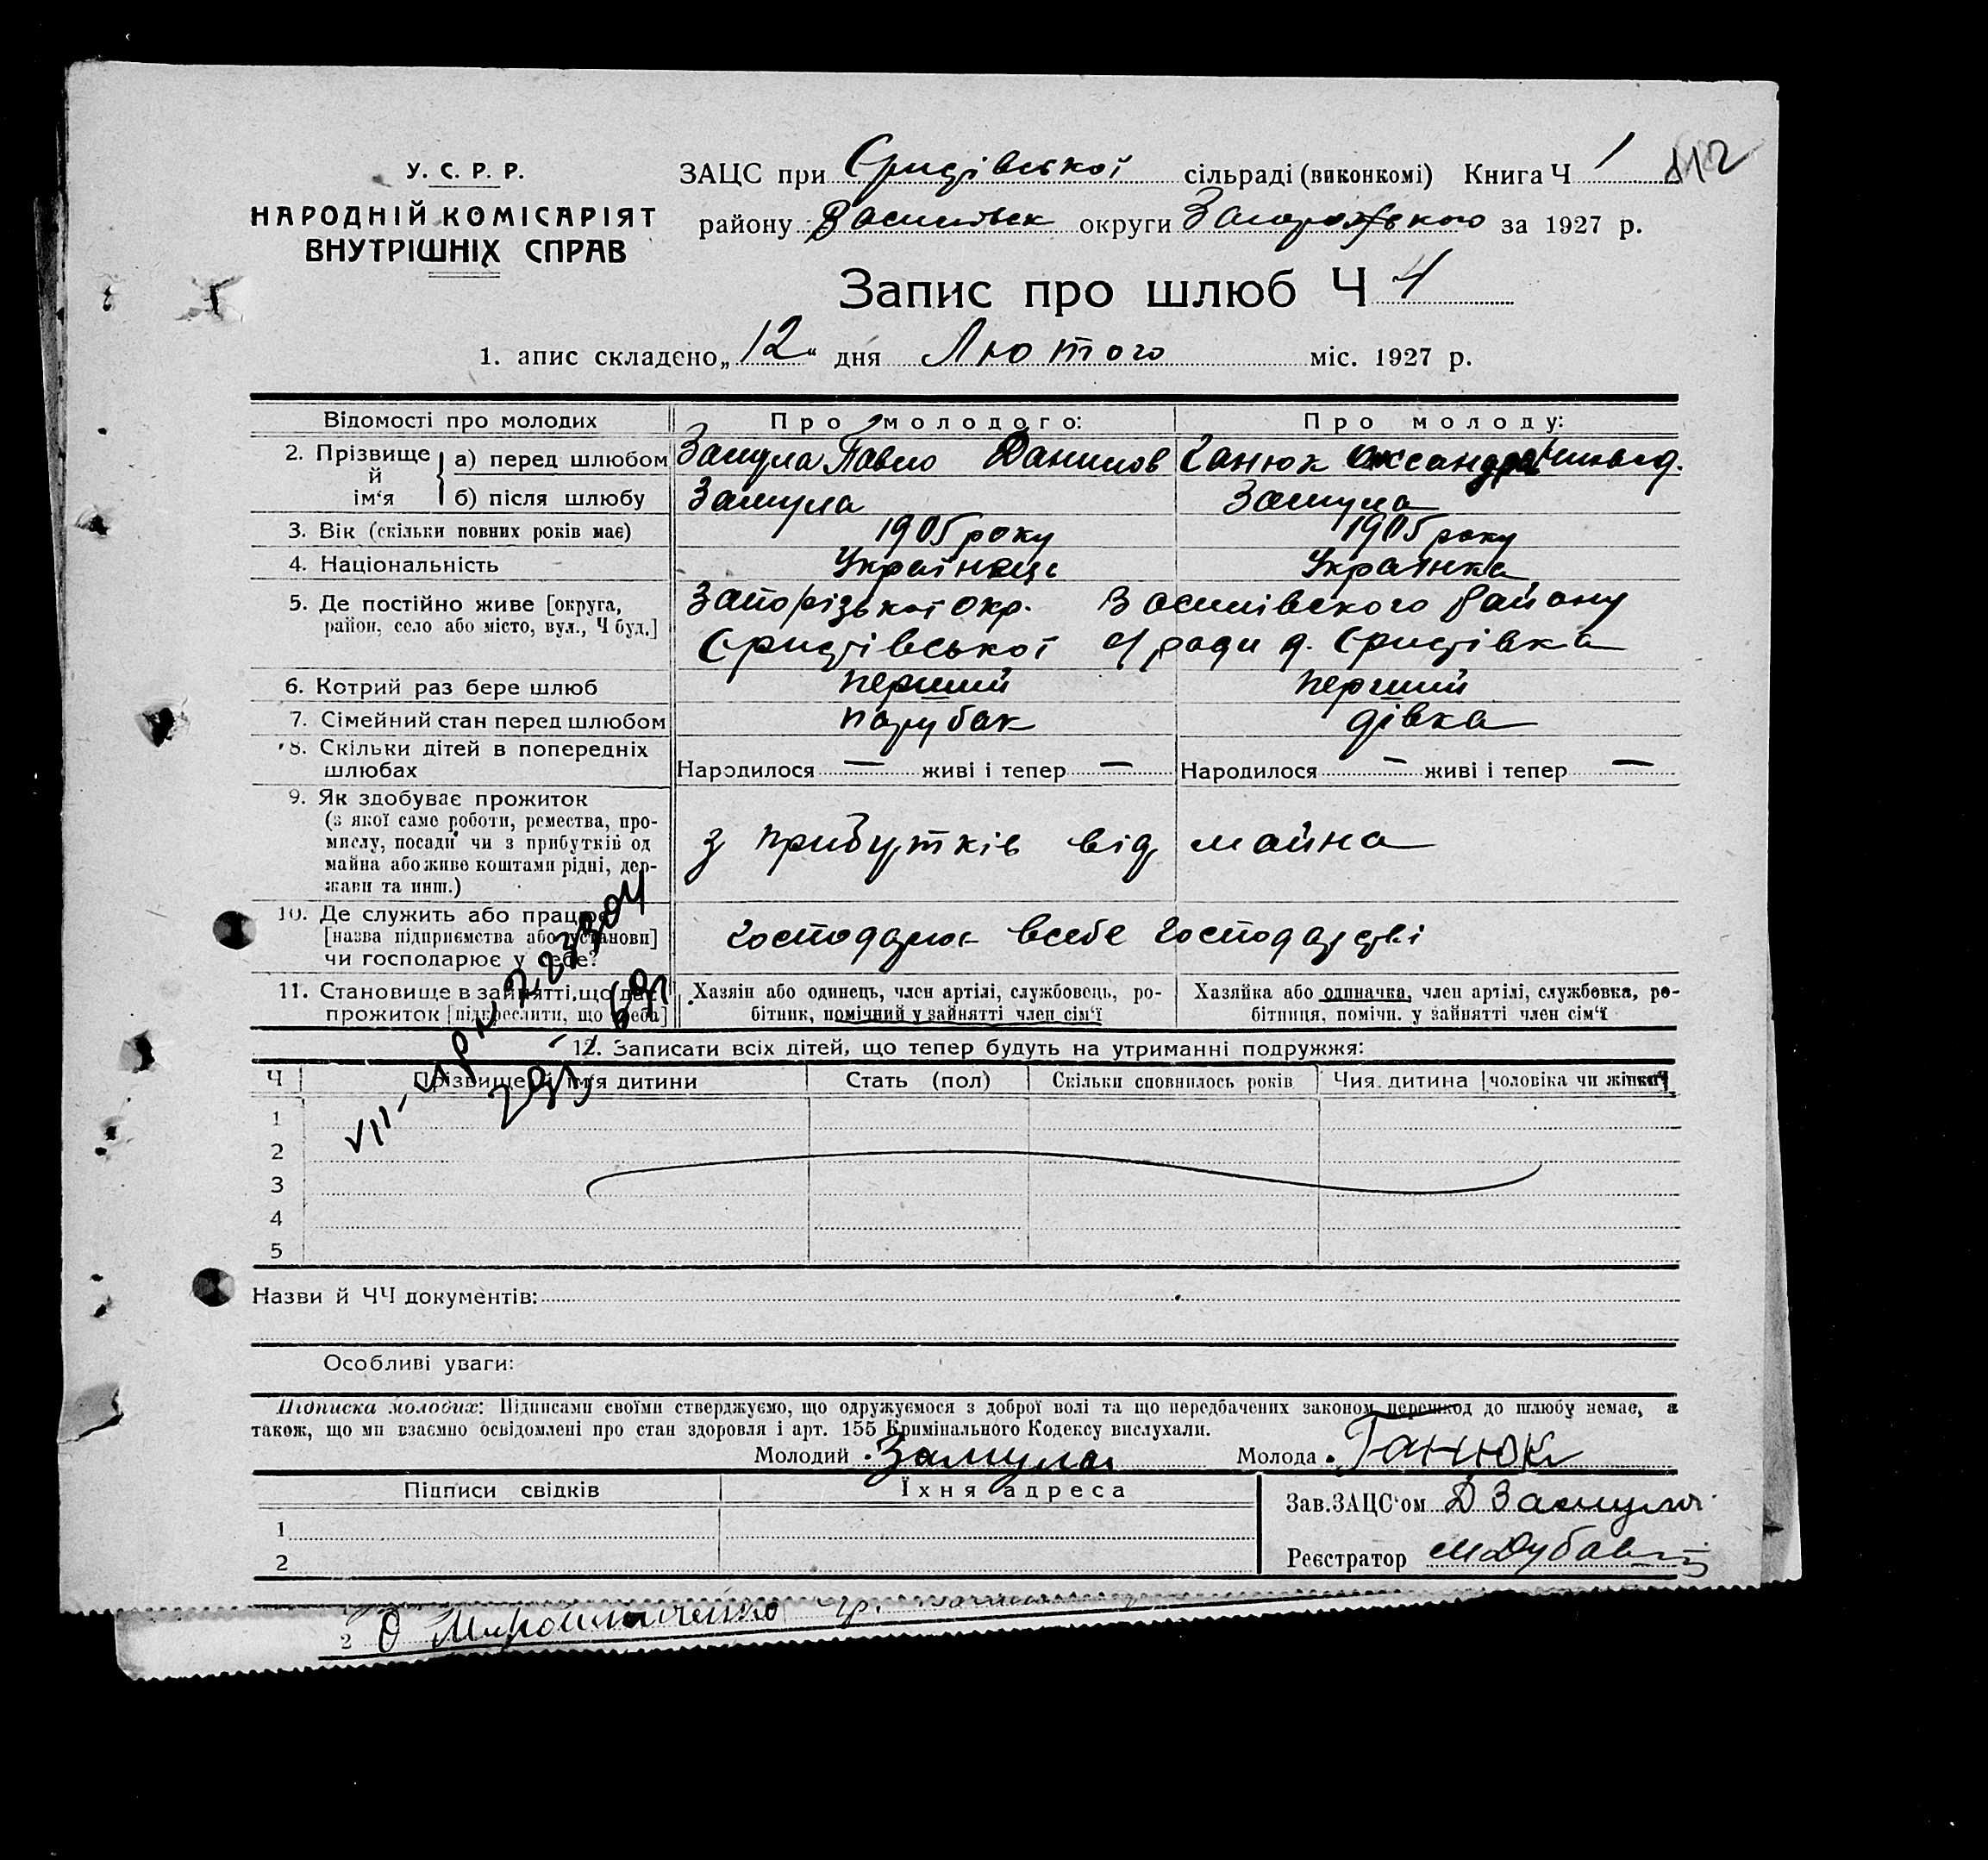 У. С. Р. Р.
НАРОДНІЙ КОМІСАРІЯТ
ВНУТРІШНІХ СПРАВ
ЗАЦС при Єристівської сільраді (виконкомі) Книга Ч 1 112
району Василівськ округи Запоріжського за 1927 р.
Запис про шлюб Ч 4
1. апис складено „12“ дня Лютого міс. 1927 р.
Відомості про молодих Про молодого: Про молоду:
2. Прізвище й ім‘я а) перед шлюбом Замула Павло Данилов Ганюк Олександра
б) після шлюбу Замула Замула
3. Вік (скільки повних років має) 1905 року 1905 року
4. Національність Українець Українка
5. Де постійно живе [округа, Запорізької окр. Василівского району
район, село або місто, вул., Ч буд.] Єристівської с/ради д. Єристівка
6. Котрий раз бере шлюб перший перший
7. Сімейний стан перед шлюбом парубак дівка
8. Скільки дітей в попередніх
шлюбах Народилося — живі і тепер — Народилося — живі і тепер —
9. Як здобуває прожиток
(з якої саме роботи, ремества, про-
мислу, посади чи з прибутків од
майна або живе коштами рідні, дер-
жави та инш.)
з прибутків від майна
10. Де служить або працює
[назва підприємства або установи]
чи господарює у себе?
господарює всебе
11. Становище в зайнятті, що дає
прожиток [підкреслити, що треба]
Хазяїн або одинець, член артілі, службовець, ро-
бітник, помічний у зайнятті член сім‘ї
Хазяйка або одиначка, член артілі, службовка, ро-
бітниця, помічн. у зайнятті член сім‘ї
12. Записати всіх дітей, що тепер будуть на утриманні подружжя:
Ч Прізвище й ім‘я дитини Стать (пол) Скільки сповнилось років Чия дитина [чоловіка чи жінки]
1
2
3
4
5
Назви й ЧЧ документів:
Особливі уваги:
Підписка молодих: Підписами своїми стверджуємо, що одружуємося з доброї волі та що передбачених законом перешкод до шлюбу немає, а
також, що ми взаємно освідомлені про стан здоровля і арт. 155 Кримінального Кодексу вислухали.
Молодий Замула Молода Ганюк
Підписи свідків Їхня адреса
1
2
Зав. ЗАЦС‘ом Д Замула
Реєстратор
2 О Мирошниченко